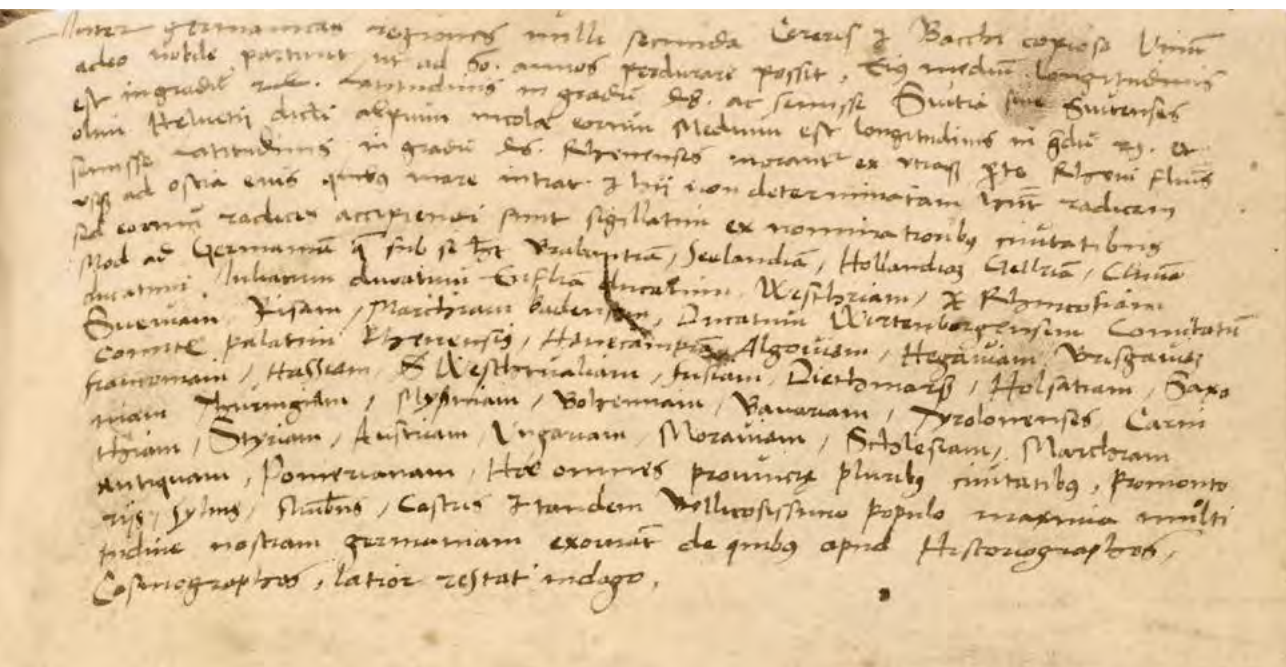 Inter germanicas regiones nulli secunda Cereris & Bacchi copiose Vinū
adeo nobile parturit ut ad 60. annos perdurare possit. Eius mediū longitudinis
est in gradu Latitudinis in gradu 48. ac semisse Suitia sive Suitenses
olim Helvetij dicti alpium incolae eorum Medium est longitudinis in gradu et
semisse Latitudinis in gradu 46. Rhenenses morant ex utraq parte Rheni fluvii
usq ad ostia eius quibus mare intrat & hij non determinatam hnt radicem
sed eorum radices accipiendi sunt sigillatim ex nominationibus civitatibus
Mod ad Germaniam q sub se ht Brabantiam, Seelandiam, Hollandiam Gelriam, Clivae
ducatum, Juliacum ducatum ducatum, Westhriam, &
Sueviam, Risam, Marchiam badensem, Ducatum Wirtenbergensem Comitatū
Comitis Palatini Rhenensis, Algoviam, Hegaviam, Brisgaviam
franconiam, Hassiam, & Westhvaliam, frisiam, Diethmarss, Holsatiam, Saxo
niam Thuringiam, Mysniam, Bohemiam, Bavariam, Tyrolonenses, Carin
thiam, Styriam, Austriam, Ungariam, Moraviam, Schlesiam, Marchiam
Antiquam, Pomeraniam, Hae omnes provincie pluribus civitatibus, Promonto
rijs, sylvis, Castris & tandem Bellicosissimo populo maxima multi
tudine nostram germaniam exornāt de quibus apud Historiographos,
Cosmographos, latior restat indago.